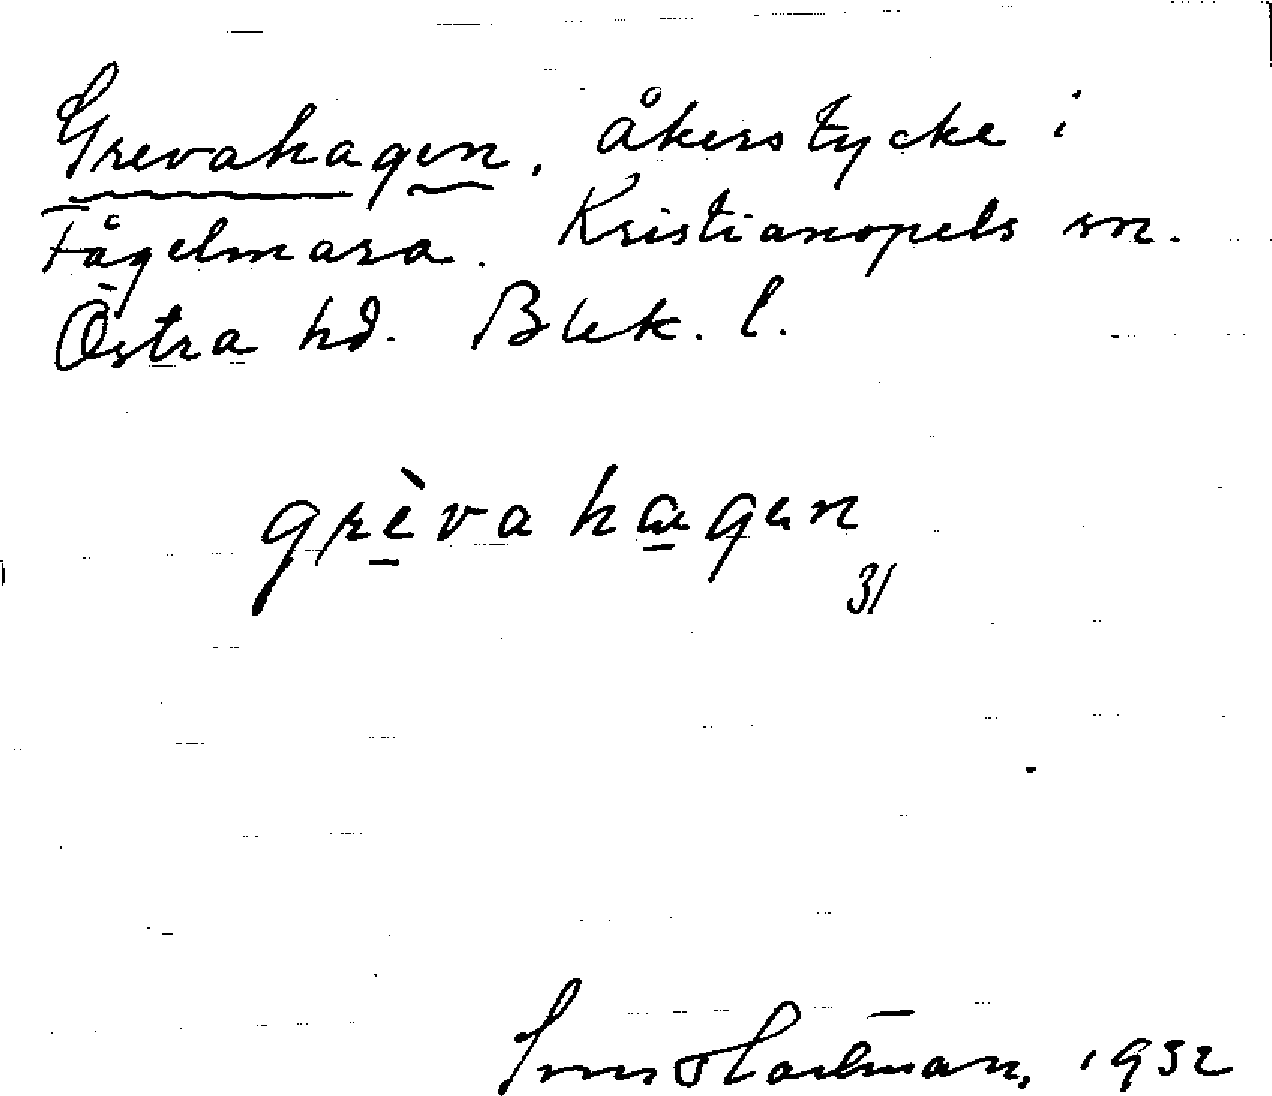 Grevahagen, åkerstycke i
Fågelmara. Kristianopels sn.
Östra hd. Blek. l.
grèvahagen
31
1932